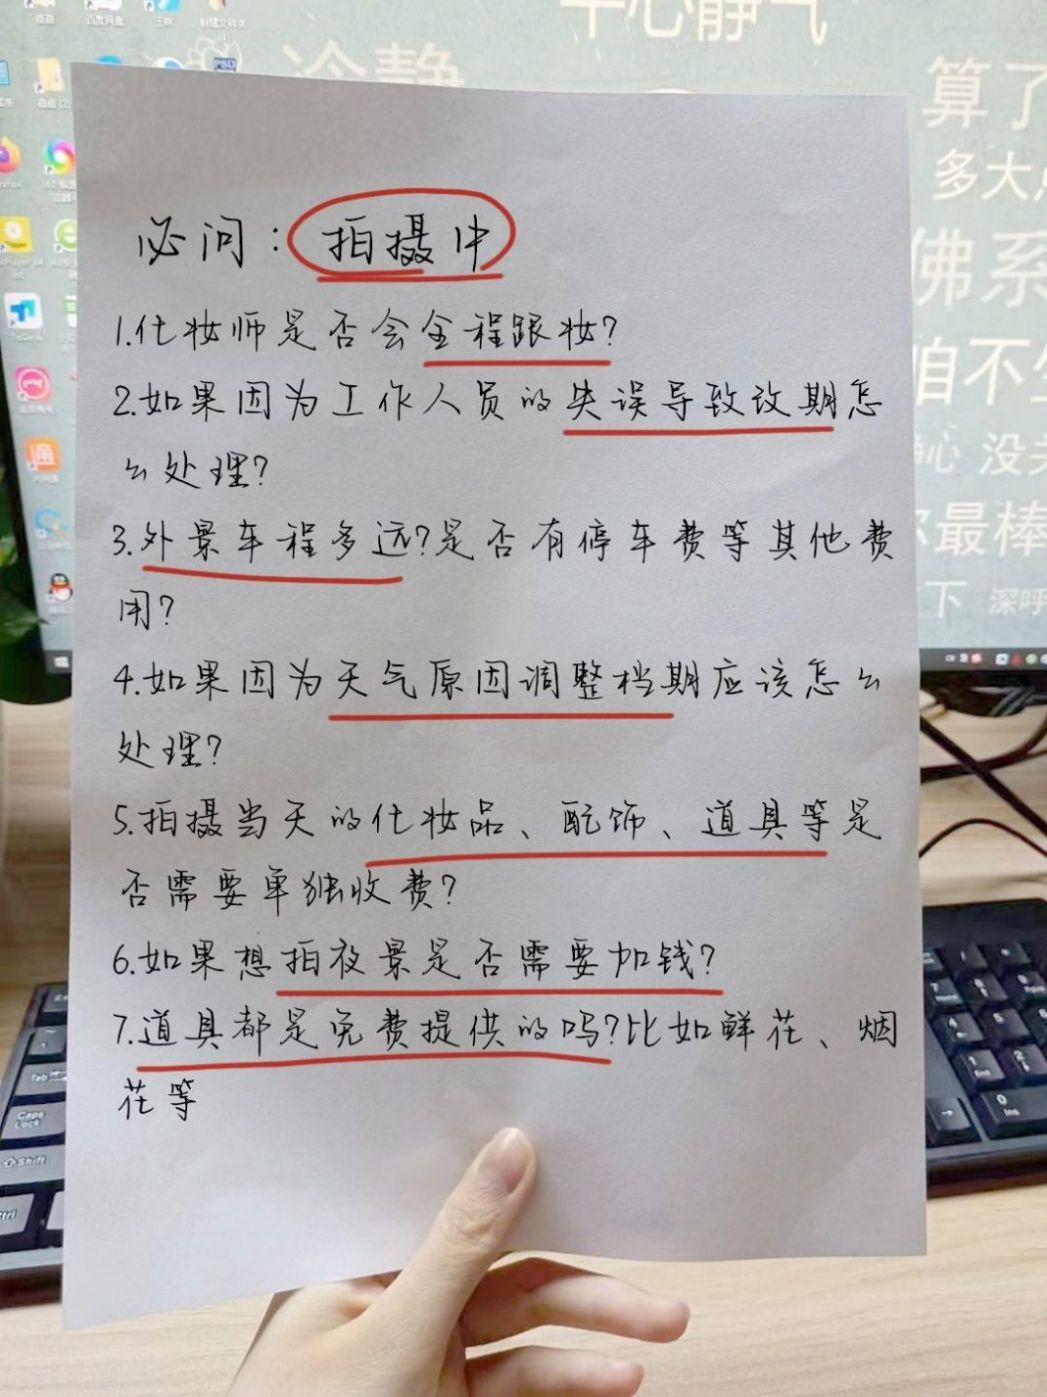 平心静气
冷静
算了
多大
佛系
没
最棒
下 深呼
必问：拍摄中
1.化妆师是否会全程跟妆?
2.如果因为工作人员的失误导致改期怎
么处理?
3.外景车程多远?是否有停车费等其他费
用?
4.如果因为天气原因调整档期应该怎么
处理?
5.拍摄当天的化妆品、配饰、道具等是
否需要单独收费?
6.如果想拍夜景是否需要加钱?
7.道具都是免费提供的吗?比如鲜花、烟
花等
Tab
Caps
Lock
Shift
Ctrl
1
End
0
Ins